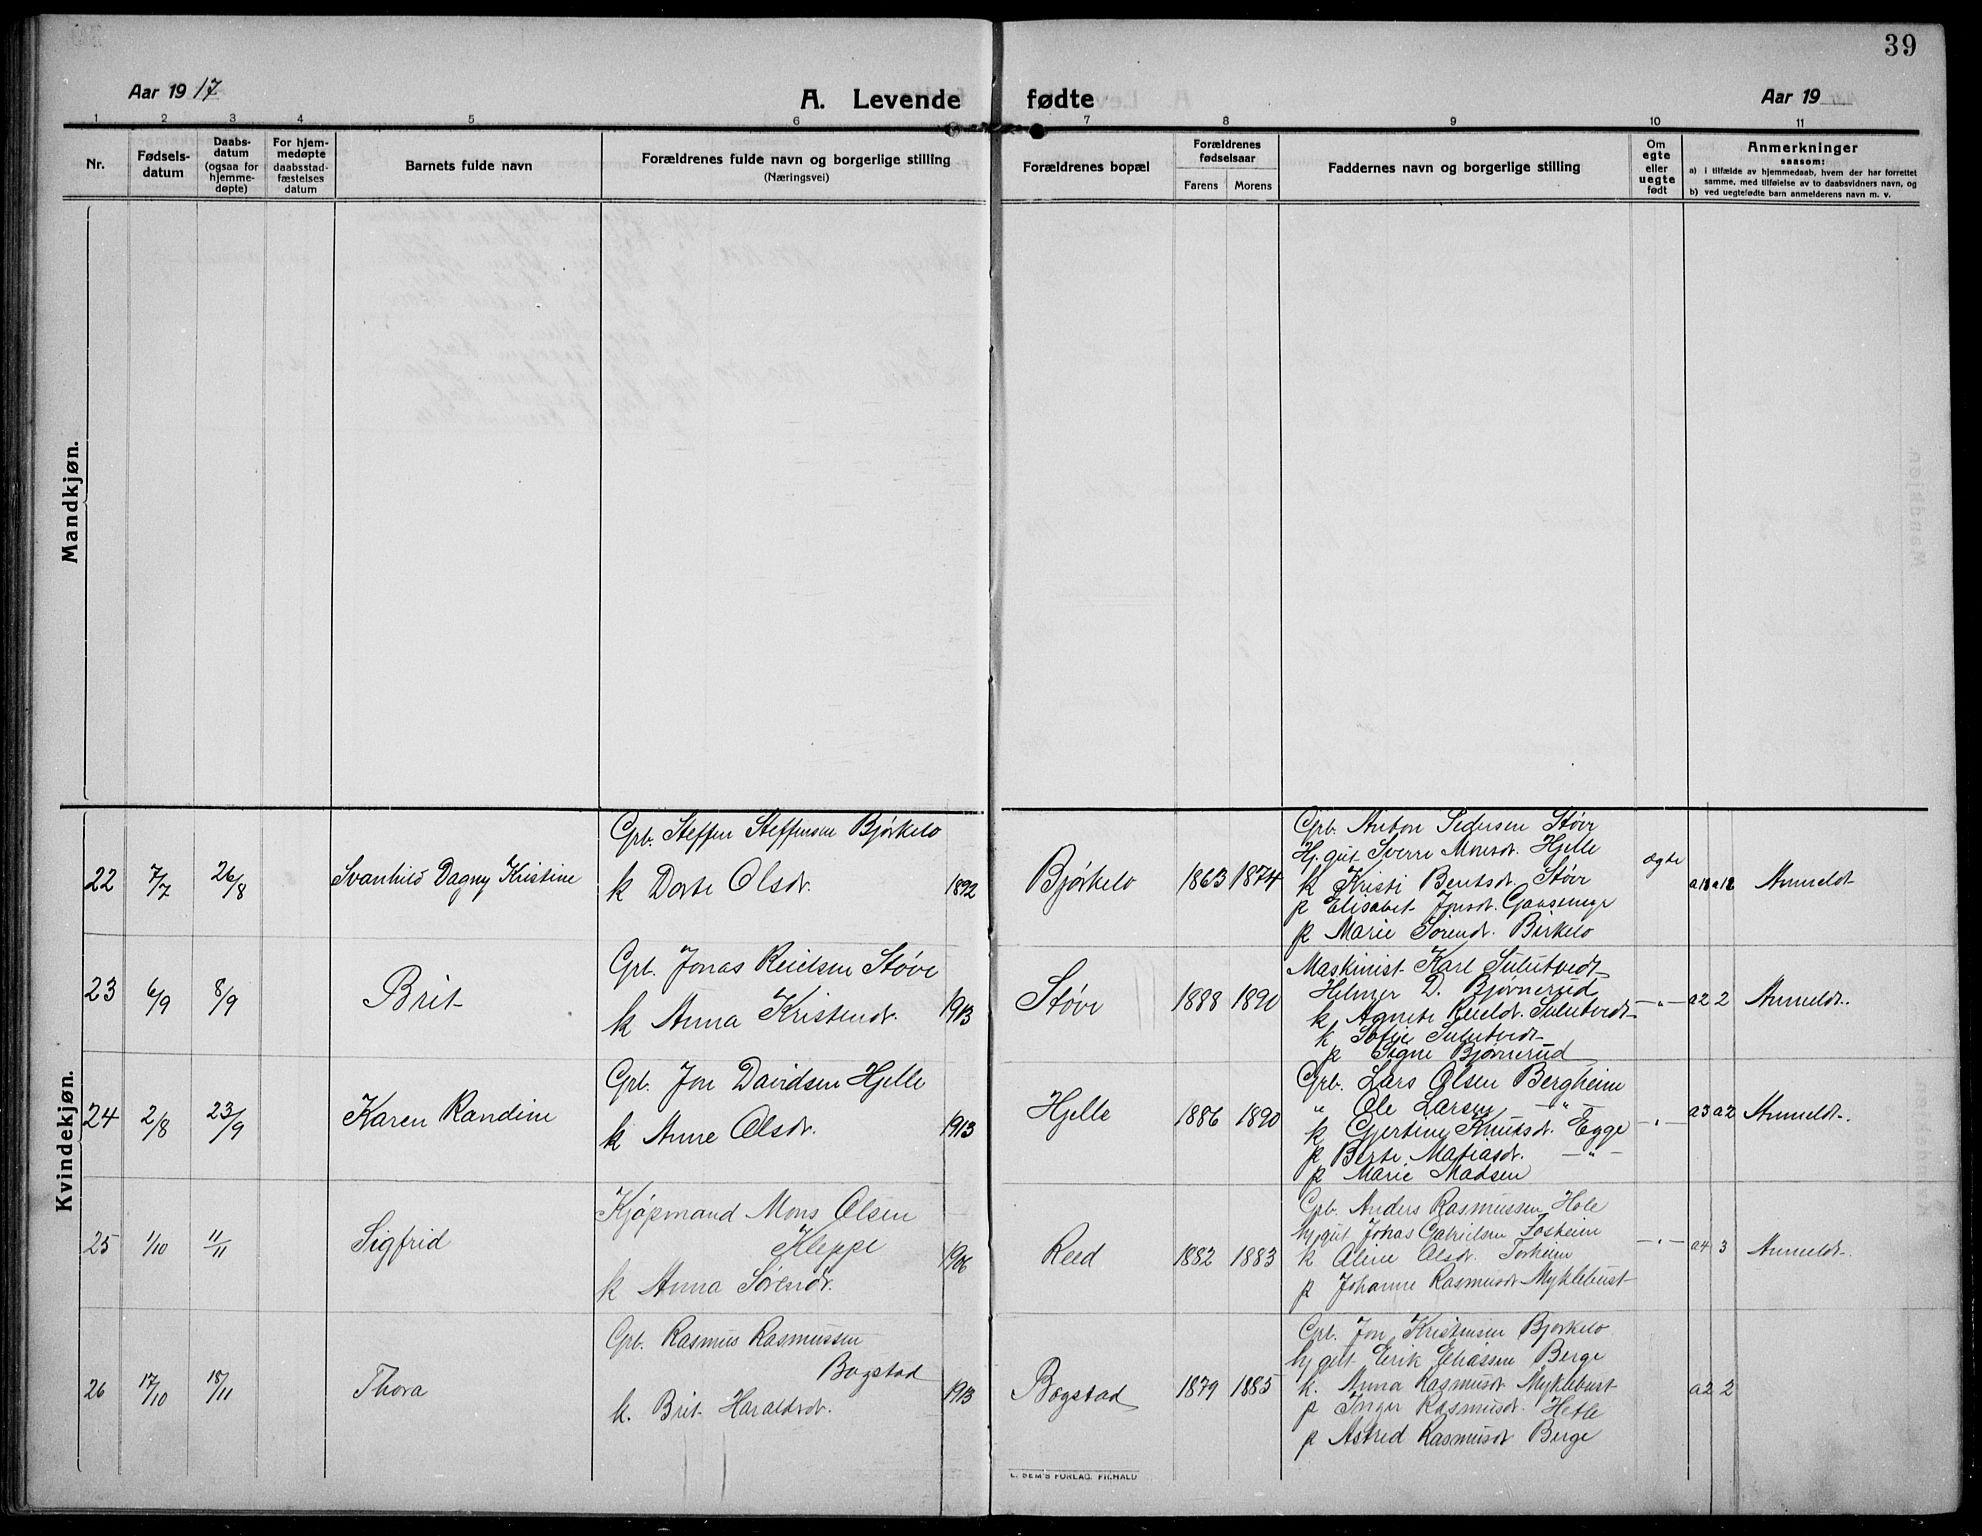 39
Aar 1917
A. Levende fødte
Aar 19
1 2 3 4 5 6 7 8 9 10 11
Nr.
Fødsels-
datum
Daabs-
datum
(ogsaa for
hjemme-
døpte)
For hjem-
medøpte
daabsstad-
fæstelses
datum
Barnets fulde navn
Forældrenes fulde navn og borgerlige stilling
(Næringsvei)
Forældrenes bopæl
Forældrenes
fødselsaar
Farens Morens
Faddernes navn og borgerlige stilling
Om
egte
eller
uegte
født
Anmerkninger
saasom:
a) i tilfælde av hjemmedaab, hvem der har forrettet
samme, med tilføielse av to daabsvidners navn, og
b) ved uegtefødte barn anmelderens navn m. v.
Mandkjøn.
Kvindekjøn.
22 7/7 26/8 Svanhild Dagny Kristine
Grb. Steffen Steffensen Bjørkelo
k Dorte Olsdr. 1892
Bjørkelo 1863 1874
Grb. Anton Pedersen Støve
Hj.gut Sverre Monsdt. Hjelle
k Kristi Bentsdt. Støve
p Elisabet Jonsdt.
p Marie Sørensdt. Birkelo
ægte
Anmeldt
23 6/9 8/9 Brit
Grb. Jonas Reielsen Støve
k Anna Kristensdr. 1913
Støve 1888 1890
Maskinist Karl Sulutvedt
Helmer D. Bjørnerud
k Agnete Reieldt. Sulutvedt
k Sofie Sulutvedt
p Signe Bjørnerud
-"- a2 2 Anmeldt.
24 2/8 23/9 Karen Randine
Grb. Jon Davidsen Hjelle
k Anne Olsdr. 1913
Hjelle 1886 1890
Grb. Lars Olsen Bergheim
" Ole Larsen -"-
k Gjertine Knutsdt. Egge
p Berte Matiasdt. -"-
p Marie Madsen
-"- a3 a2 Anmeldt.
25 1/10 11/11 Sigfrid
Kjøpmand Mons Olsen
Kleppe
k Anna Sørensdr. 1906
Reed 1882 1883
Grb. Anders Rasmussen Hole
hjgut Jonas Gabrielsen Fosheim
k Oline Olsdt. Forheim
p Johanne Rasmusdt Myklebust
-"- a4 3 Anmeldt.
26 17/10 18/11 Thora
Grb. Rasmus Rasmussen
Bogstad
k. Brit Haraldsdr. 1913
Bogstad 1879 1885
Grb. Jon Kristensen Bjørkelo
hjgut Erik Eliassen Berge
k. Anna Rasmusdt Myklebust
p Inger Rasmusdt. Hetle
p Astrid Rasmusdt Berge
a2 2
E. SEM'S FORLAG, FR.HALD